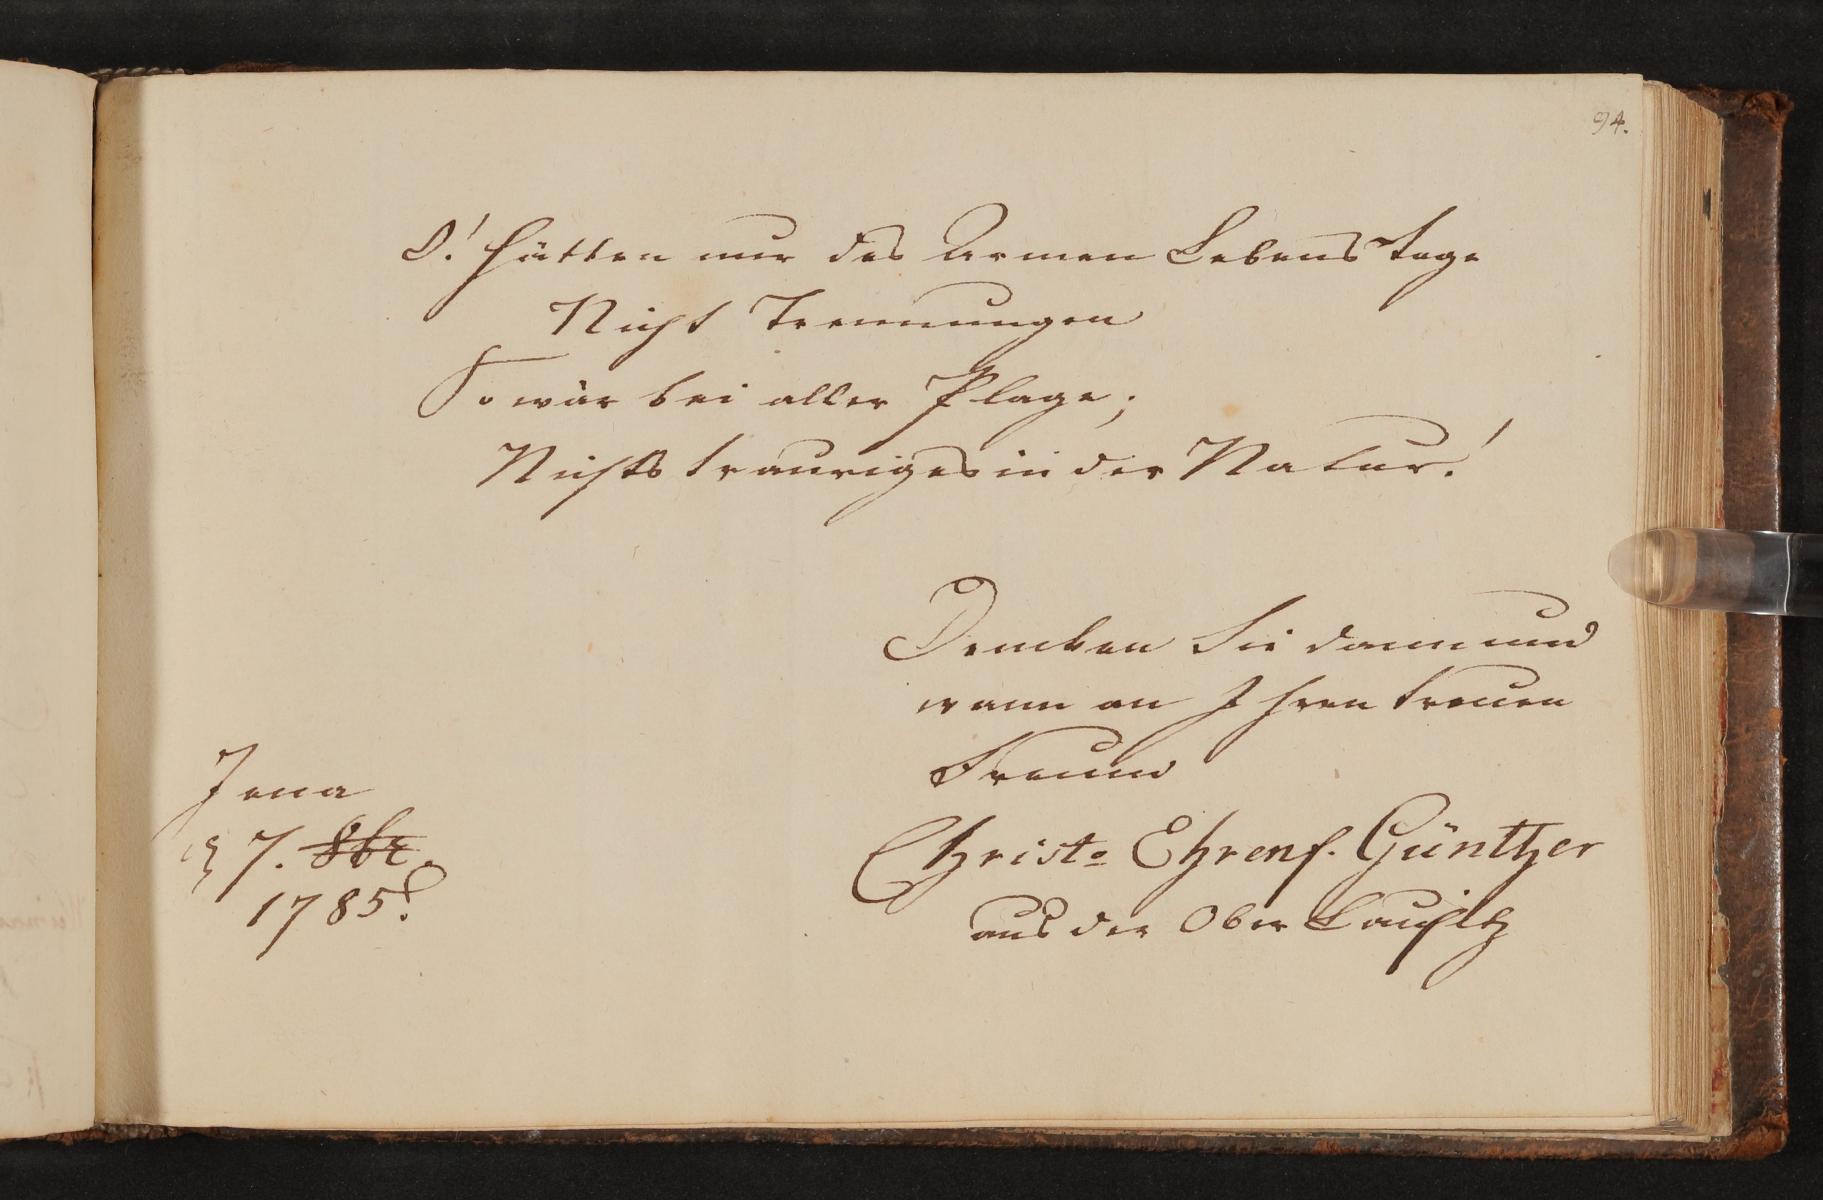 94.
O! hätten nur des Armen Lebens Tage
Nicht Trennungen
So wär bei aller Plage;
Nichts trauriges in der Natur!
Dencken Sie dann und
wann an Ihren treuen
Freund
Jena
7. 8br.
1785.
Christ. Ehrenf. Günther
aus der Ober Lausitz